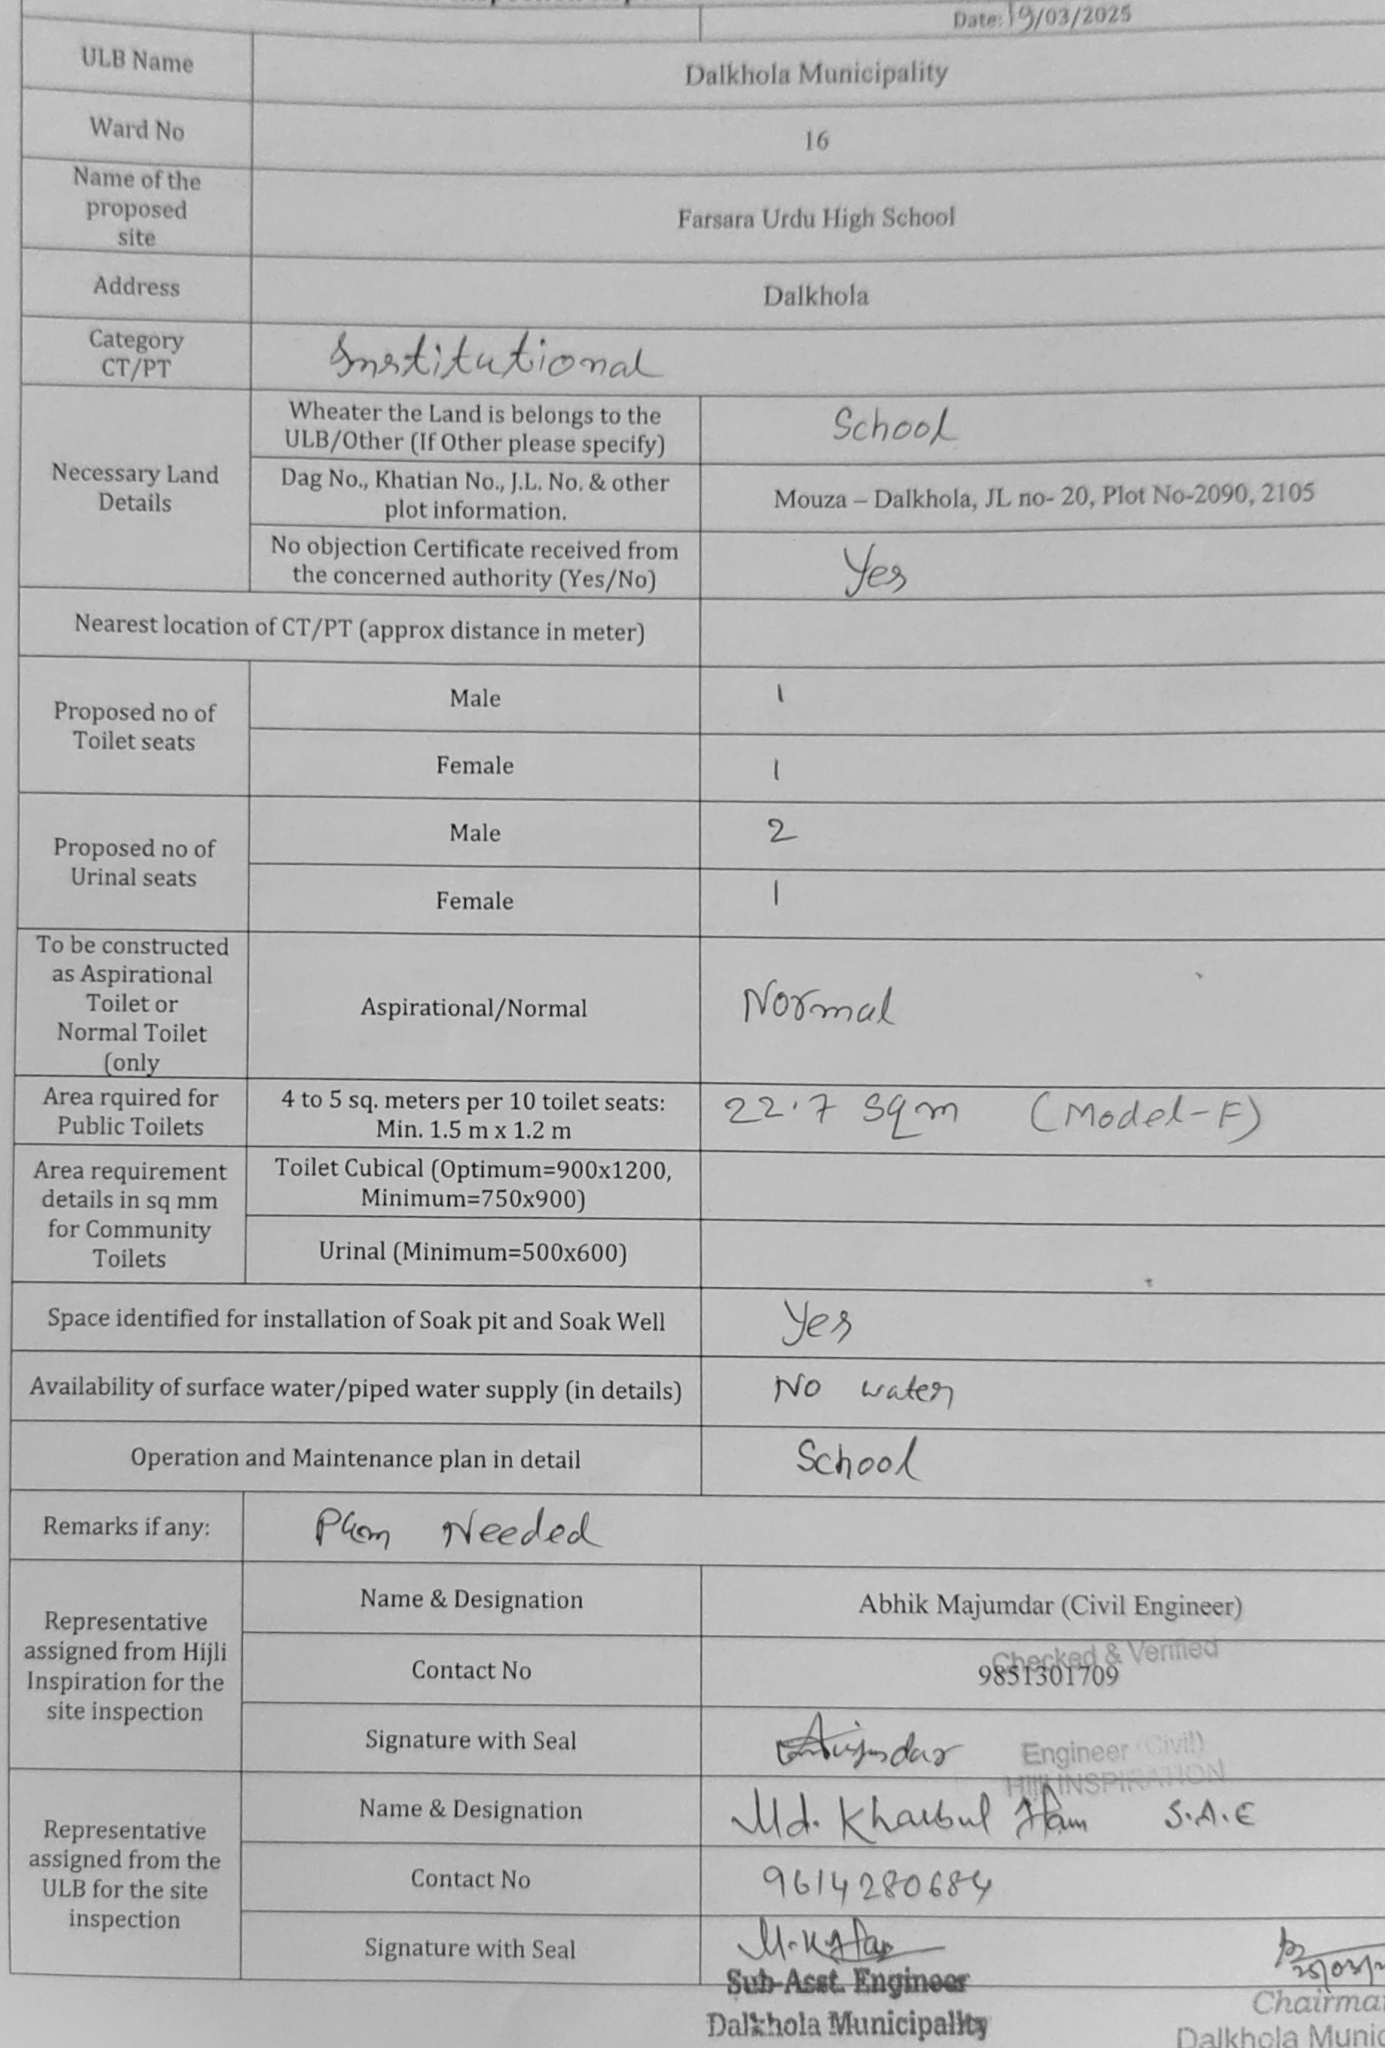 Date: 19/03/2025
ULB Name
Dalkhola Municipality
Ward No
16
Name of the
proposed
site
Farsara Urdu High School
Address
Dalkhola
Category
CT/PT
Institutional
Necessary Land
Details
Wheater the Land is belongs to the
ULB/Other (If Other please specify)
School
Dag No., Khatian No., J.L. No. & other
plot information.
Mouza – Dalkhola, JL no- 20, Plot No-2090, 2105
No objection Certificate received from
the concerned authority (Yes/No)
Yes
Nearest location of CT/PT (approx distance in meter)
Proposed no of
Toilet seats
Male
1
Female
1
Proposed no of
Urinal seats
Male
2
Female
1
To be constructed
as Aspirational
Toilet or
Normal Toilet
(only
Aspirational/Normal
Normal
Area rquired for
Public Toilets
4 to 5 sq. meters per 10 toilet seats:
Min. 1.5 m x 1.2 m
22.7 sqm (Model-F)
Area requirement
details in sq mm
for Community
Toilets
Toilet Cubical (Optimum=900x1200,
Minimum=750x900)
Urinal (Minimum=500x600)
Space identified for installation of Soak pit and Soak Well
Yes
Availability of surface water/piped water supply (in details)
No water
Operation and Maintenance plan in detail
School
Remarks if any:
Plan Needed
Representative
assigned from Hijli
Inspiration for the
site inspection
Name & Designation
Abhik Majumdar (Civil Engineer)
Contact No
Checked & Verified
9851301709
Signature with Seal
Engineer (Civil)
HIJLI INSPIRATION
Representative
assigned from the
ULB for the site
inspection
Name & Designation
Md. S.A.E
Contact No
9614280684
Signature with Seal
Sub-Asst. Engineer
Dalkhola Municipality
Chairma
Dalkhola Munic